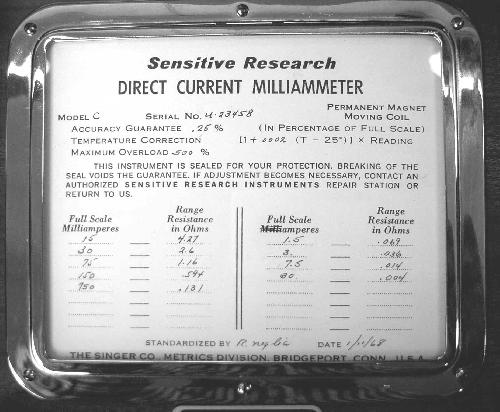 Sensitive Research
DIRECT CURRENT MILLIAMMETER
MODEL C SERIAL NO. 4-23458 PERMANENT MAGNET MOVING COIL
ACCURACY GUARANTEE .25 % (IN PERCENTAGE OF FULL SCALE)
TEMPERATURE CORRECTION [1 + .0002 (T - 25°)] × READING
MAXIMUM OVERLOAD 500 %
THIS INSTRUMENT IS SEALED FOR YOUR PROTECTION. BREAKING OF THE
SEAL VOIDS THE GUARANTEE. IF ADJUSTMENT BECOMES NECESSARY, CONTACT AN
AUTHORIZED SENSITIVE RESEARCH INSTRUMENTS REPAIR STATION OR
RETURN TO US.
Full Scale Milliamperes Range Resistance in Ohms
15 4.27
30 2.6
75 1.16
150 .594
750 .131
Full Scale amperes Range Resistance in Ohms
1.5 .069
3. .036
7.5 .014
30. .004
STANDARDIZED BY DATE 1/11/68
THE SINGER CO., METRICS DIVISION, BRIDGEPORT, CONN., U.S.A.